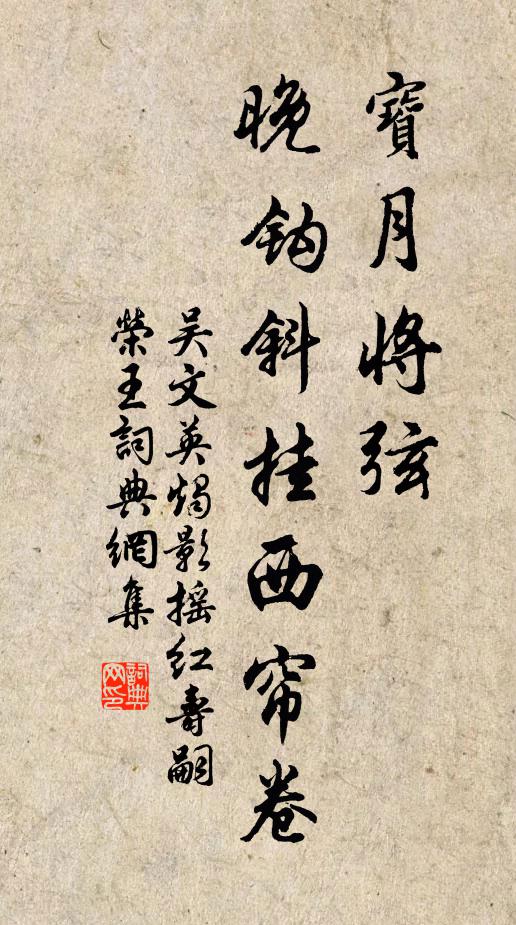 寶月將弦
晚鈎斜挂西帘卷
吴文英燭影摇红壽嗣
榮王詞典網集
詞典網印